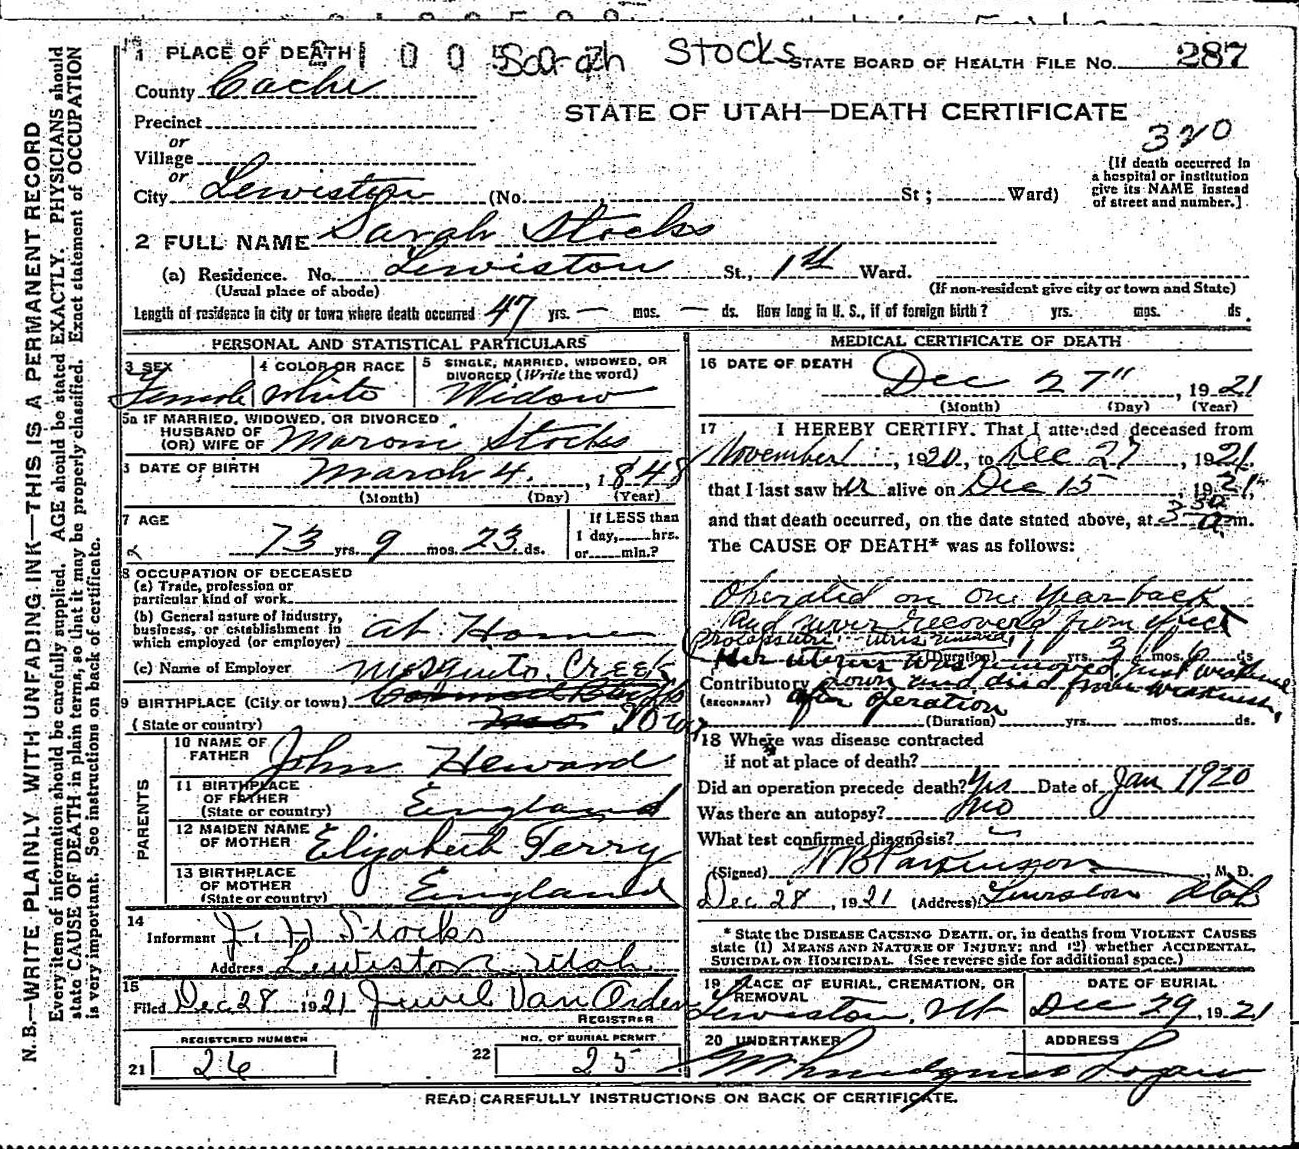 1 PLACE OF DEATH Sarah Stocks STATE BOARD OF HEALTH FILE NO. 287
County Cache
STATE OF UTAH—DEATH CERTIFICATE
Precinct
320
or
Village
or
City Lewiston (No. St; Ward)
(If death occurred in
a hospital or institution
give its NAME instead
of street and number.]
2 FULL NAME Sarah Stocks
(a) Residence. No. Lewiston St., 1st Ward.
(Usual place of abode) (If non-resident give city or town and State)
Length of residence in city or town where death occurred 47 yrs. — mos. — ds. How long in U. S., if of foreign birth? yrs. mos. ds.
PERSONAL AND STATISTICAL PARTICULARS
3 SEX 4 COLOR OR RACE 5 SINGLE, MARRIED, WIDOWED, OR
DIVORCED (Write the word)
Female White Widow
5a IF MARRIED, WIDOWED, OR DIVORCED
HUSBAND OF
(OR) WIFE OF Moroni Stocks
DATE OF BIRTH March 4, 1848
(Month) (Day) (Year)
7 AGE 73 yrs. 9 mos. 23 ds.
If LESS than
1 day, hrs.
or min.?
8 OCCUPATION OF DECEASED
(a) Trade, profession or
particular kind of work
(b) General nature of industry,
business, or establishment in
which employed (or employer) at Home
(c) Name of Employer
Mosquito Creek
9 BIRTHPLACE (City or town)
(State or country) Iowa
PARENTS
10 NAME OF
FATHER John Heward
11 BIRTHPLACE
OF FATHER
(State or country) England
12 MAIDEN NAME
OF MOTHER Elizabeth Terry
13 BIRTHPLACE
OF MOTHER
(State or country) England
14
Informant J. H Stocks
Address Lewiston Utah
15
Filed Dec 28 1921 Jewel Van Orden
REGISTRAR
REGISTERED NUMBER NO. OF BURIAL PERMIT
21 26 22 25
MEDICAL CERTIFICATE OF DEATH
16 DATE OF DEATH
Dec 27", 1921
(Month) (Day) (Year)
17 I HEREBY CERTIFY. That I attended deceased from
November 1, 1920, to Dec 27, 1921
that I last saw her alive on Dec 15, 1921,
and that death occurred, on the date stated above, at 3 30 a m.
The CAUSE OF DEATH* was as follows:
Operated on one year back
and never recovered from effect
(Duration) 1 yrs. 3 mos. 6 ds
Her uterus was removed just
Contributory down and died from weakness
(SECONDARY) after operation
(Duration) yrs. mos. ds.
18 Where was disease contracted
if not at place of death?
Did an operation precede death? Yes Date of Jan 1920
Was there an autopsy? No
What test confirmed diagnosis?
(Signed) W B Parkinson M. D.
Dec 28, 1921 (Address) Lewiston Utah
* State the DISEASE CAUSING DEATH, or, in deaths from VIOLENT CAUSES
state (1) MEANS AND NATURE OF INJURY; and (2) whether ACCIDENTAL,
SUICIDAL OR HOMICIDAL. (See reverse side for additional space.)
19 PLACE OF BURIAL, CREMATION, OR
REMOVAL
Lewiston, Ut
DATE OF BURIAL
Dec 29, 1921
20 UNDERTAKER ADDRESS
Logan
READ CAREFULLY INSTRUCTIONS ON BACK OF CERTIFICATE.
N. B.—WRITE PLAINLY WITH UNFADING INK—THIS IS A PERMANENT RECORD
Every item of information should be carefully supplied. AGE should be stated EXACTLY. PHYSICIANS should
state CAUSE OF DEATH in plain terms, so that it may be properly classified. Exact statement of OCCUPATION
is very important. See instructions on back of certificate.